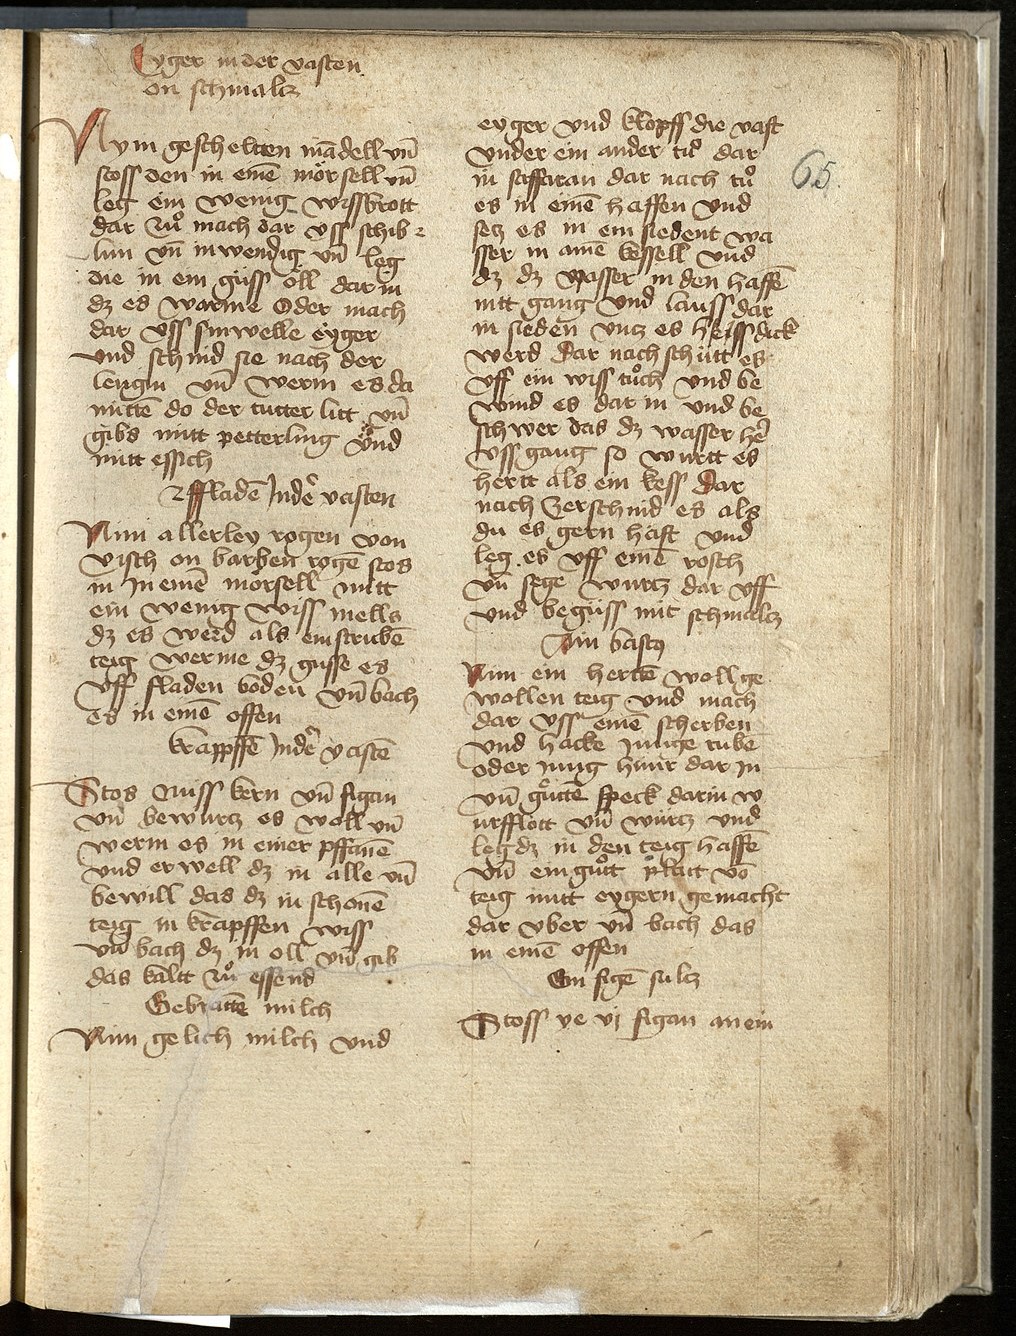 Eyger in der vasten
on schmaltz
Nym geschelten mādell vn̄
stoss den in eine mörsell vn̄
leg ein wenig wissbrott
dar zů mach dar vss schib
lun vn̄ inwendig vn̄ leg
die in ein güss öll dar in
dz es warme Oder mach
dar vss sinwelle eyger
vnd schnid sie nach der
lengin vn̄ werm es da
mittē do der tutter litt vn̄
gibs mitt petterling vnd
mitt essich
Fladē Jnder vasten
Nim allerley rogen von
visch on barben rogē stos
in Jn einē mörsell mitt
ein wenig wiss mells
dz es werd als ein strubē
teig werme dz gusse es
vff fladen boden vn̄ bach
es in einē offen
krapffē Jnder vastē
Stos Nuss kern vn̄ figan
vn̄ bewurtz es woll vn̄
werm es in einer pffanē
vnd erwell dz in alle vn̄
bewill das dz in schonē
teig in krapffen wiss
vn̄ bach dz in oll vn̄ gib
das kaltt zů essend
Gebrattē milch
Nim gelich milch vnd
eyger vnd klopff die vast
vnder ein ander tů dar
in saffaran dar nach tů
es in einē haffen vnd
setz es in ein siedent wa
sser in ainē kessell vnd
dz dz wasser in den haffē
nitt gang vnd lauss dar
in sieden vntz es heiss dick
werd Dar nach schütt es
vff ein wiss tůch vnd be
wind es dar in vnd be
schwer das dz wasser her
vss gang so wurtt es
hertt als ein kess Dar
nach Zerschnid es als
du es gern hast vnd
leg es vff einē rosch
vn̄ sege wurtz dar vff
vnd begüss mit schmaltz
Nim ein hertē woll ge
wollen teig vnd mach
dar vss einē scherben
vnd hacke Junge tubē
oder Jung hunr dar Jn
vn̄ güttē speck darin w
urfflott vn̄ würtz vnd
leg dz in den teig haffē
vn̄ ein gůtt platt vō
teig mitt eygern gemacht
dar vber vn̄ bach das
in einē offen
Ein figē sultz
Stoss ye vj figan an ein
65.